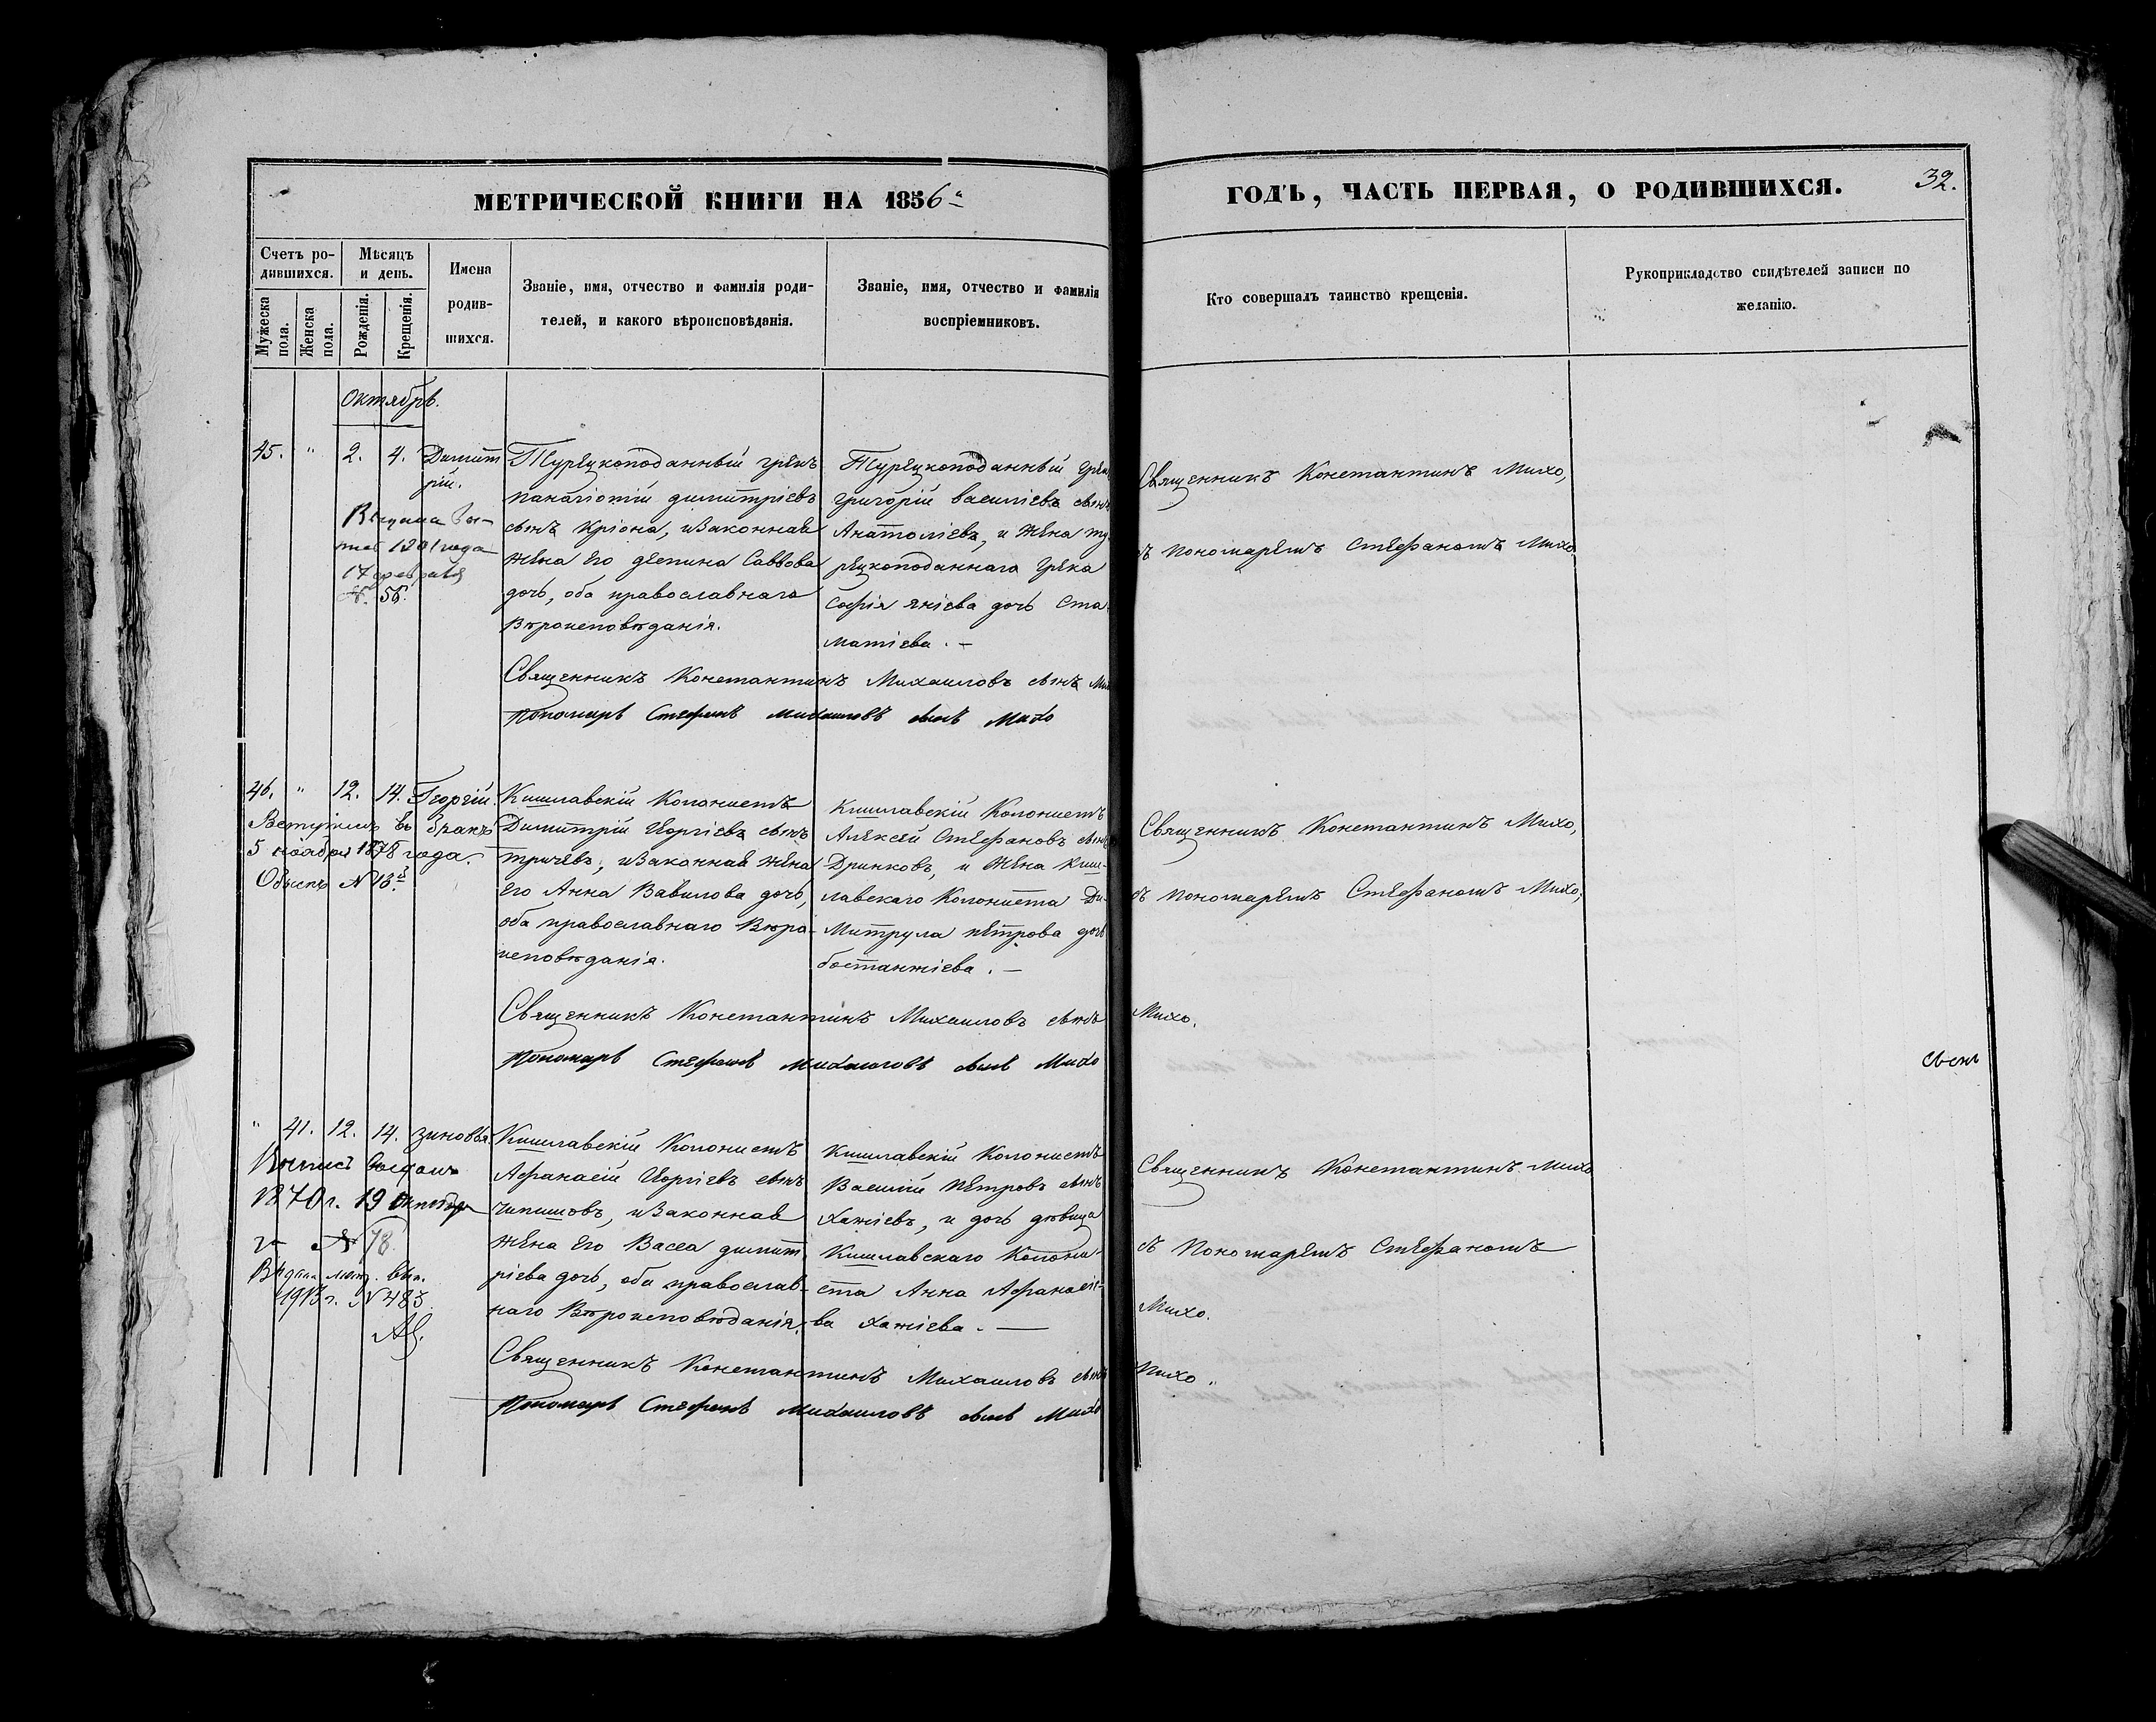 МЕТРИЧЕСКОЙ КНИГИ НА 1856ᵃ
ГОДЪ, ЧАСТЬ ПЕРВАЯ, О РОДИВШИХСЯ.
32.
Счетъ ро-
дившихся.
Мѣсяцъ
и день.
Имена
родив-
шихся.
Званіе, имя, отчество и фамилія роди-
телей, и какого вѣроисповѣданія.
Званіе, имя, отчество и фамилія
воспріемниковъ.
Мужеска
пола.
Женска
пола.
Рожденія.
Крещенія.
Кто совершалъ таинство крещенія.
Рукоприкладство свидѣтелей записи по
желанію.
Октябрь.
45. " 2. 4. Димит
рій.
17 февраля
№ 56.
Турецкоподанный грекъ
панагіотій димитріевъ
сынъ Кріона, иЗаконная
жена Его деспина Саввова
дочь, оба православнаго
Вѣроисповѣданія.
Турецкоподанный грек
григорій василіевъ сынъ
Анатоліевъ, и Жена ту-
рецкоподаннаго грека
Софія яніева дочь Ста-
матіева. —
Священникъ Константинъ Михаиловъ сынъ
Пономарь Стефанъ Михаиловъ сынъ Михо
Священникъ Константинъ Михо,
съ пономаремъ Стефаномъ Михо
46. " 12. 14. Георгій.
Вступилъ въ бракъ
5 ноября 1878 года.
Обыскъ № 13й
Кишлавскій Колонистъ
Димитрій Георгіевъ сынъ
тричевъ, иЗаконная жена
Его Анна Вавилова дочь,
оба православнаго Вѣро-
исповѣданія.
Кишлавскій Колонистъ
Алексѣй Стефановъ сынъ
Дринковъ, и Жена Киш-
лавскаго Колониста Ди-
митрула петрова дочь
бостанжіева. —
Священникъ Константинъ Михаиловъ сынъ
Михо.
Пономарь Стефанъ Михаиловъ сынъ Михо
Священникъ Константинъ Михо,
съ пономаремъ Стефаномъ Михо;
" 41. 12. 14. зиновья
1870 г. 19 Октября
№ 78.
1913 г. № 483
Кишлавскій Колонистъ
Афанасій Георгіевъ сынъ
чипишовъ, иЗаконная
жена Его Васса димит
ріева дочь, оба православ-
наго Вѣроисповѣданія.
Кишлавскій Колонистъ
Василій Петровъ сынъ
Хажіевъ, и дочь дѣвица
Кишлавскаго Колони-
ста Анна Афанасіе-
ва Хажіева. —
Священникъ Константинъ Михаиловъ сынъ
Михо.
Пономарь Стефанъ Михаиловъ сынъ Михо
Священникъ Константинъ Михо
съ Пономаремъ Стефаномъ
Михо.